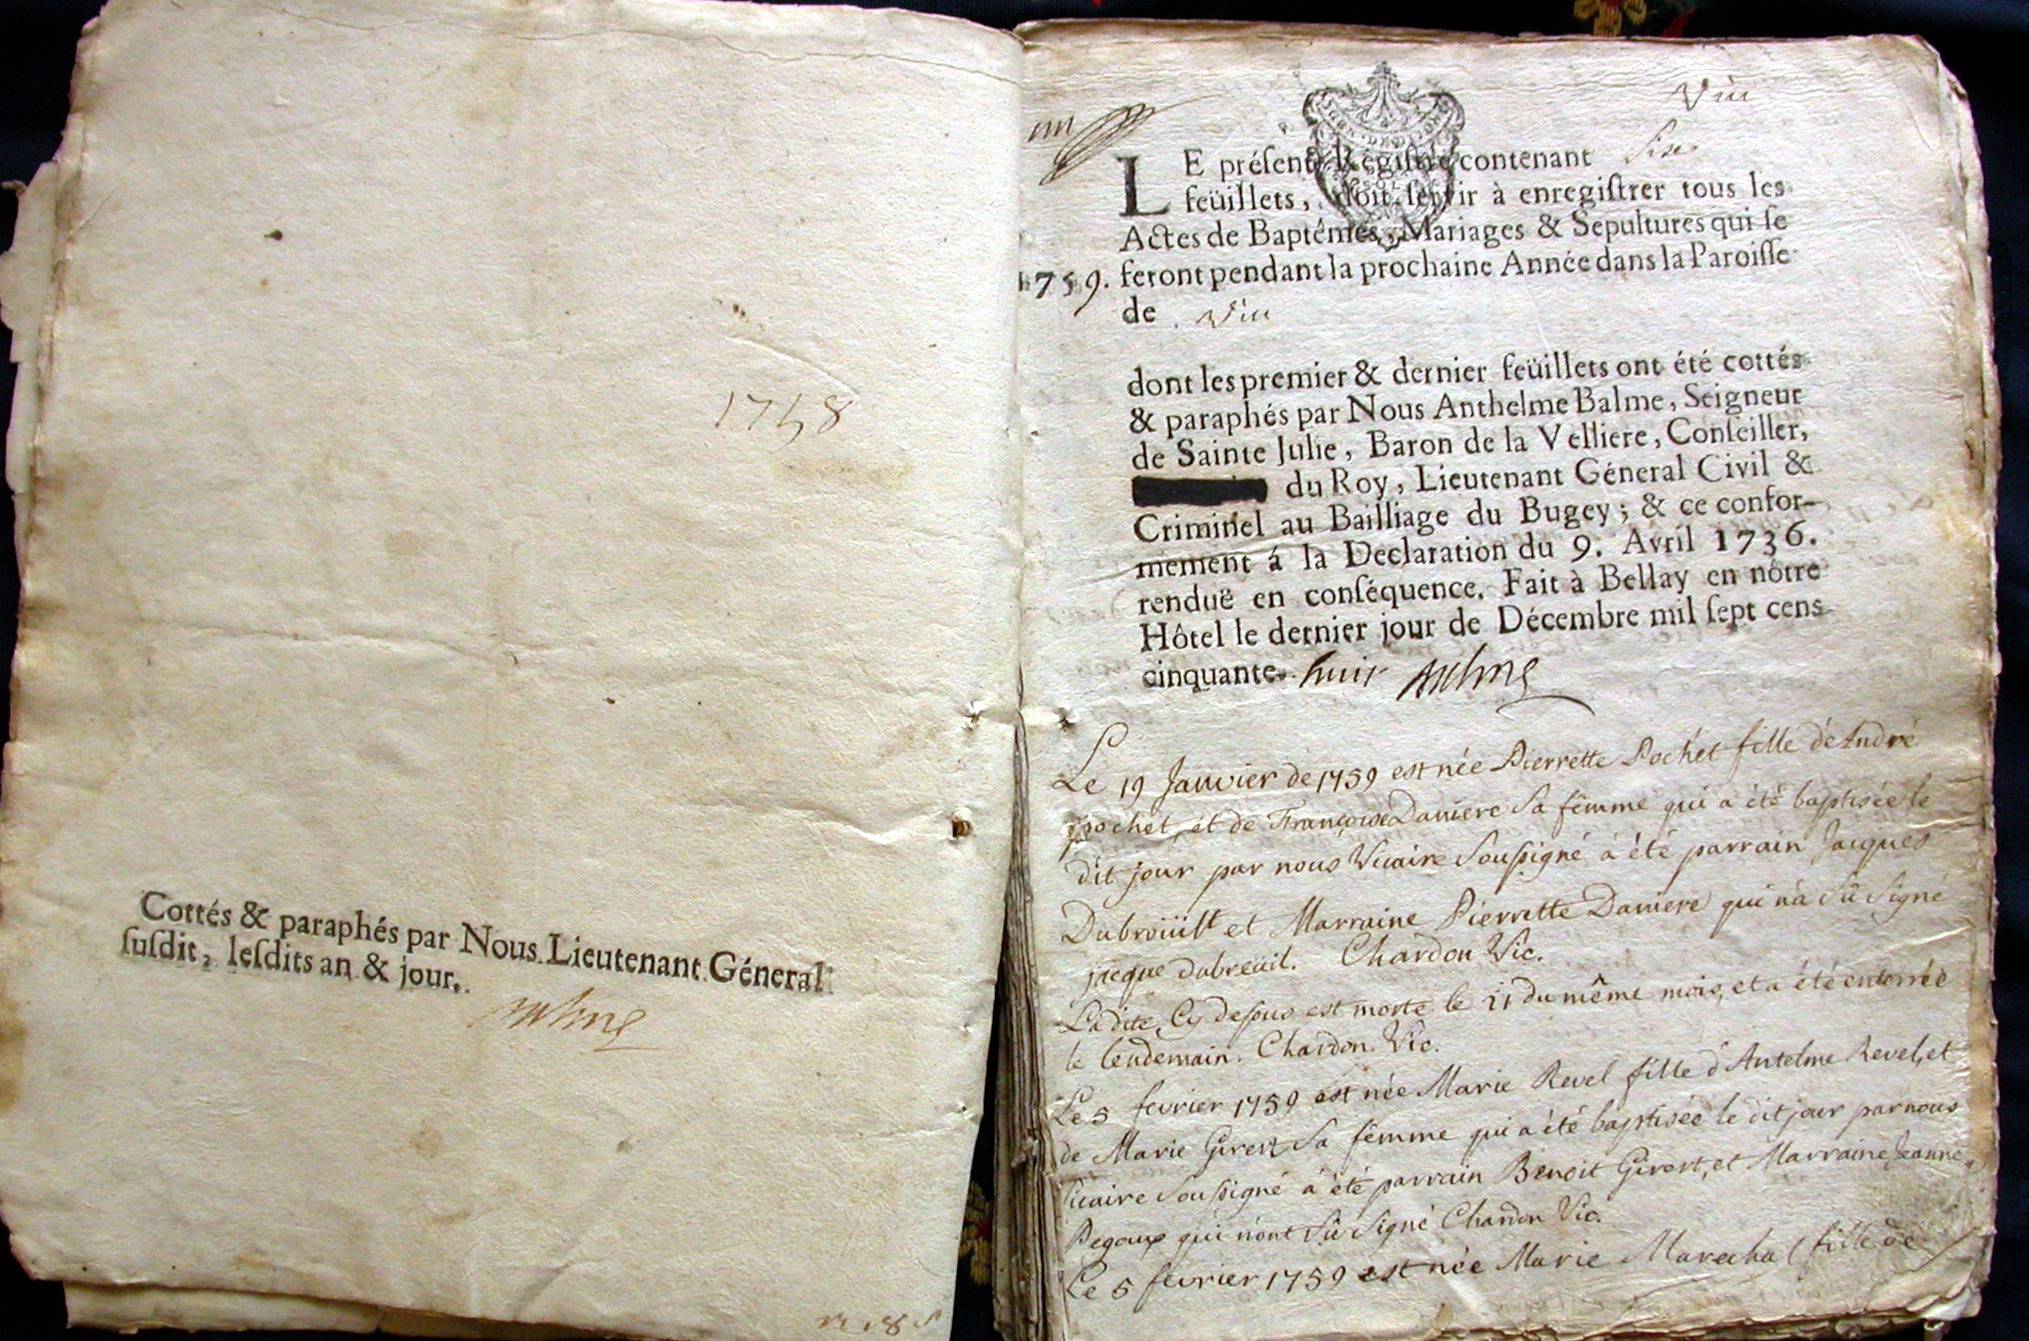 1758
Cottés & paraphés par Nous Lieutenant Géneral
ſuſdit, leſdits an & jour.
Balme
Viu
LE préſent Regiſtre contenant Six
feüillets, doit ſervir à enregiſtrer tous les
Actes de Baptêmes, Mariages & Sepultures qui ſe
1759. feront pendant la prochaine Année dans la Paroiſſe
de Viu
dont les premier & dernier feüillets ont été cottés
& paraphés par Nous Anthelme Balme, Seigneur
de Sainte Julie, Baron de la Velliere, Conſeiller,
du Roy, Lieutenant Géneral Civil &
Criminel au Bailliage du Bugey; & ce confor-
mement á la Declaration du 9. Avril 1736.
renduë en conſéquence. Fait à Bellay en nôtre
Hôtel le dernier jour de Décembre mil ſept cens
cinquante huit Balme
Le 19 Janvier de 1759 est née Pierrette Pochet fille d'André
pochet, et de Françoise Daniere Sa fêmme qui a été baptisée le
dit jour par nous Vicaire Soussigné a été parrain Jacques
et Marraine Pierrette Daniere qui n'a Sû Signé
jacque dubreüil. Chardon Vic.
Ladite Cy desous est morte le 21 du même mois, et a été enterrée
le lendemain. Chardon. Vic.
Le 5 fevrier 1759 est née Marie Revel fille d'Antelme Revel, et
de Marie Girert Sa fêmme qui a été baptisée le dit jour par nous
Vicaire Soussigné a été parrain Benoit Girert, et Marraine Jeanne
Pegoux qui n'ont Sû Signé Chardon Vic.
Le 5 fevrier 1759 est née Marie Marechal fille de